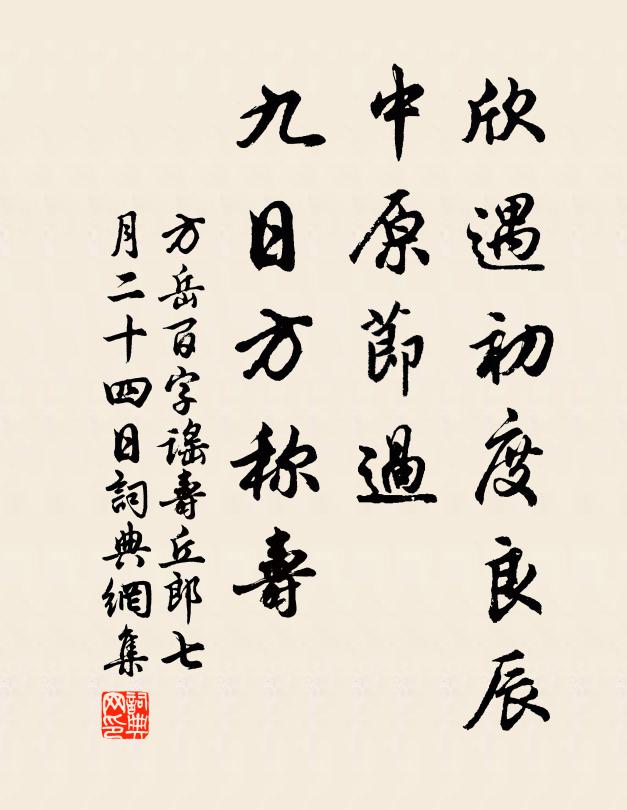 欣遇初度良辰
中原節過
九日方称壽
方岳百字謠壽丘郎七
月二十四日詞典網集
詞典网印